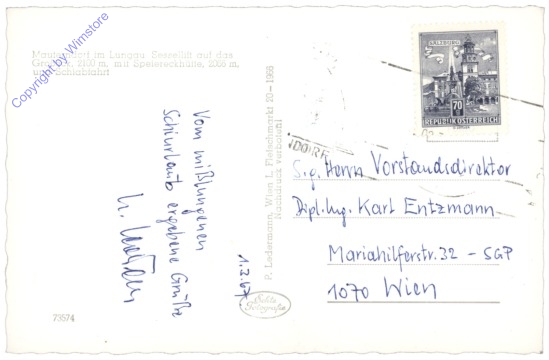 Mauterndorf im Lungau. Sessellift auf das
m. mit Speiereckhütte, 2066 m,
und Schiabfahrt
Copyright by Wimstore
Vom mißlungenen
Schiurlaub ergebene Grüße
1.2.67
73574
P. Ledermann, Wien I., Fleischmarkt 20 – 1966
Nachdruck verboten!
Echte
Fotografie
SALZBURG
70
REPUBLIK ÖSTERREICH
NDORF
S.g. Herrn Vorstandsdirektor
Dipl. Ing. Karl Entzmann
Mariahilferstr. 32 – SGP
1070 Wien